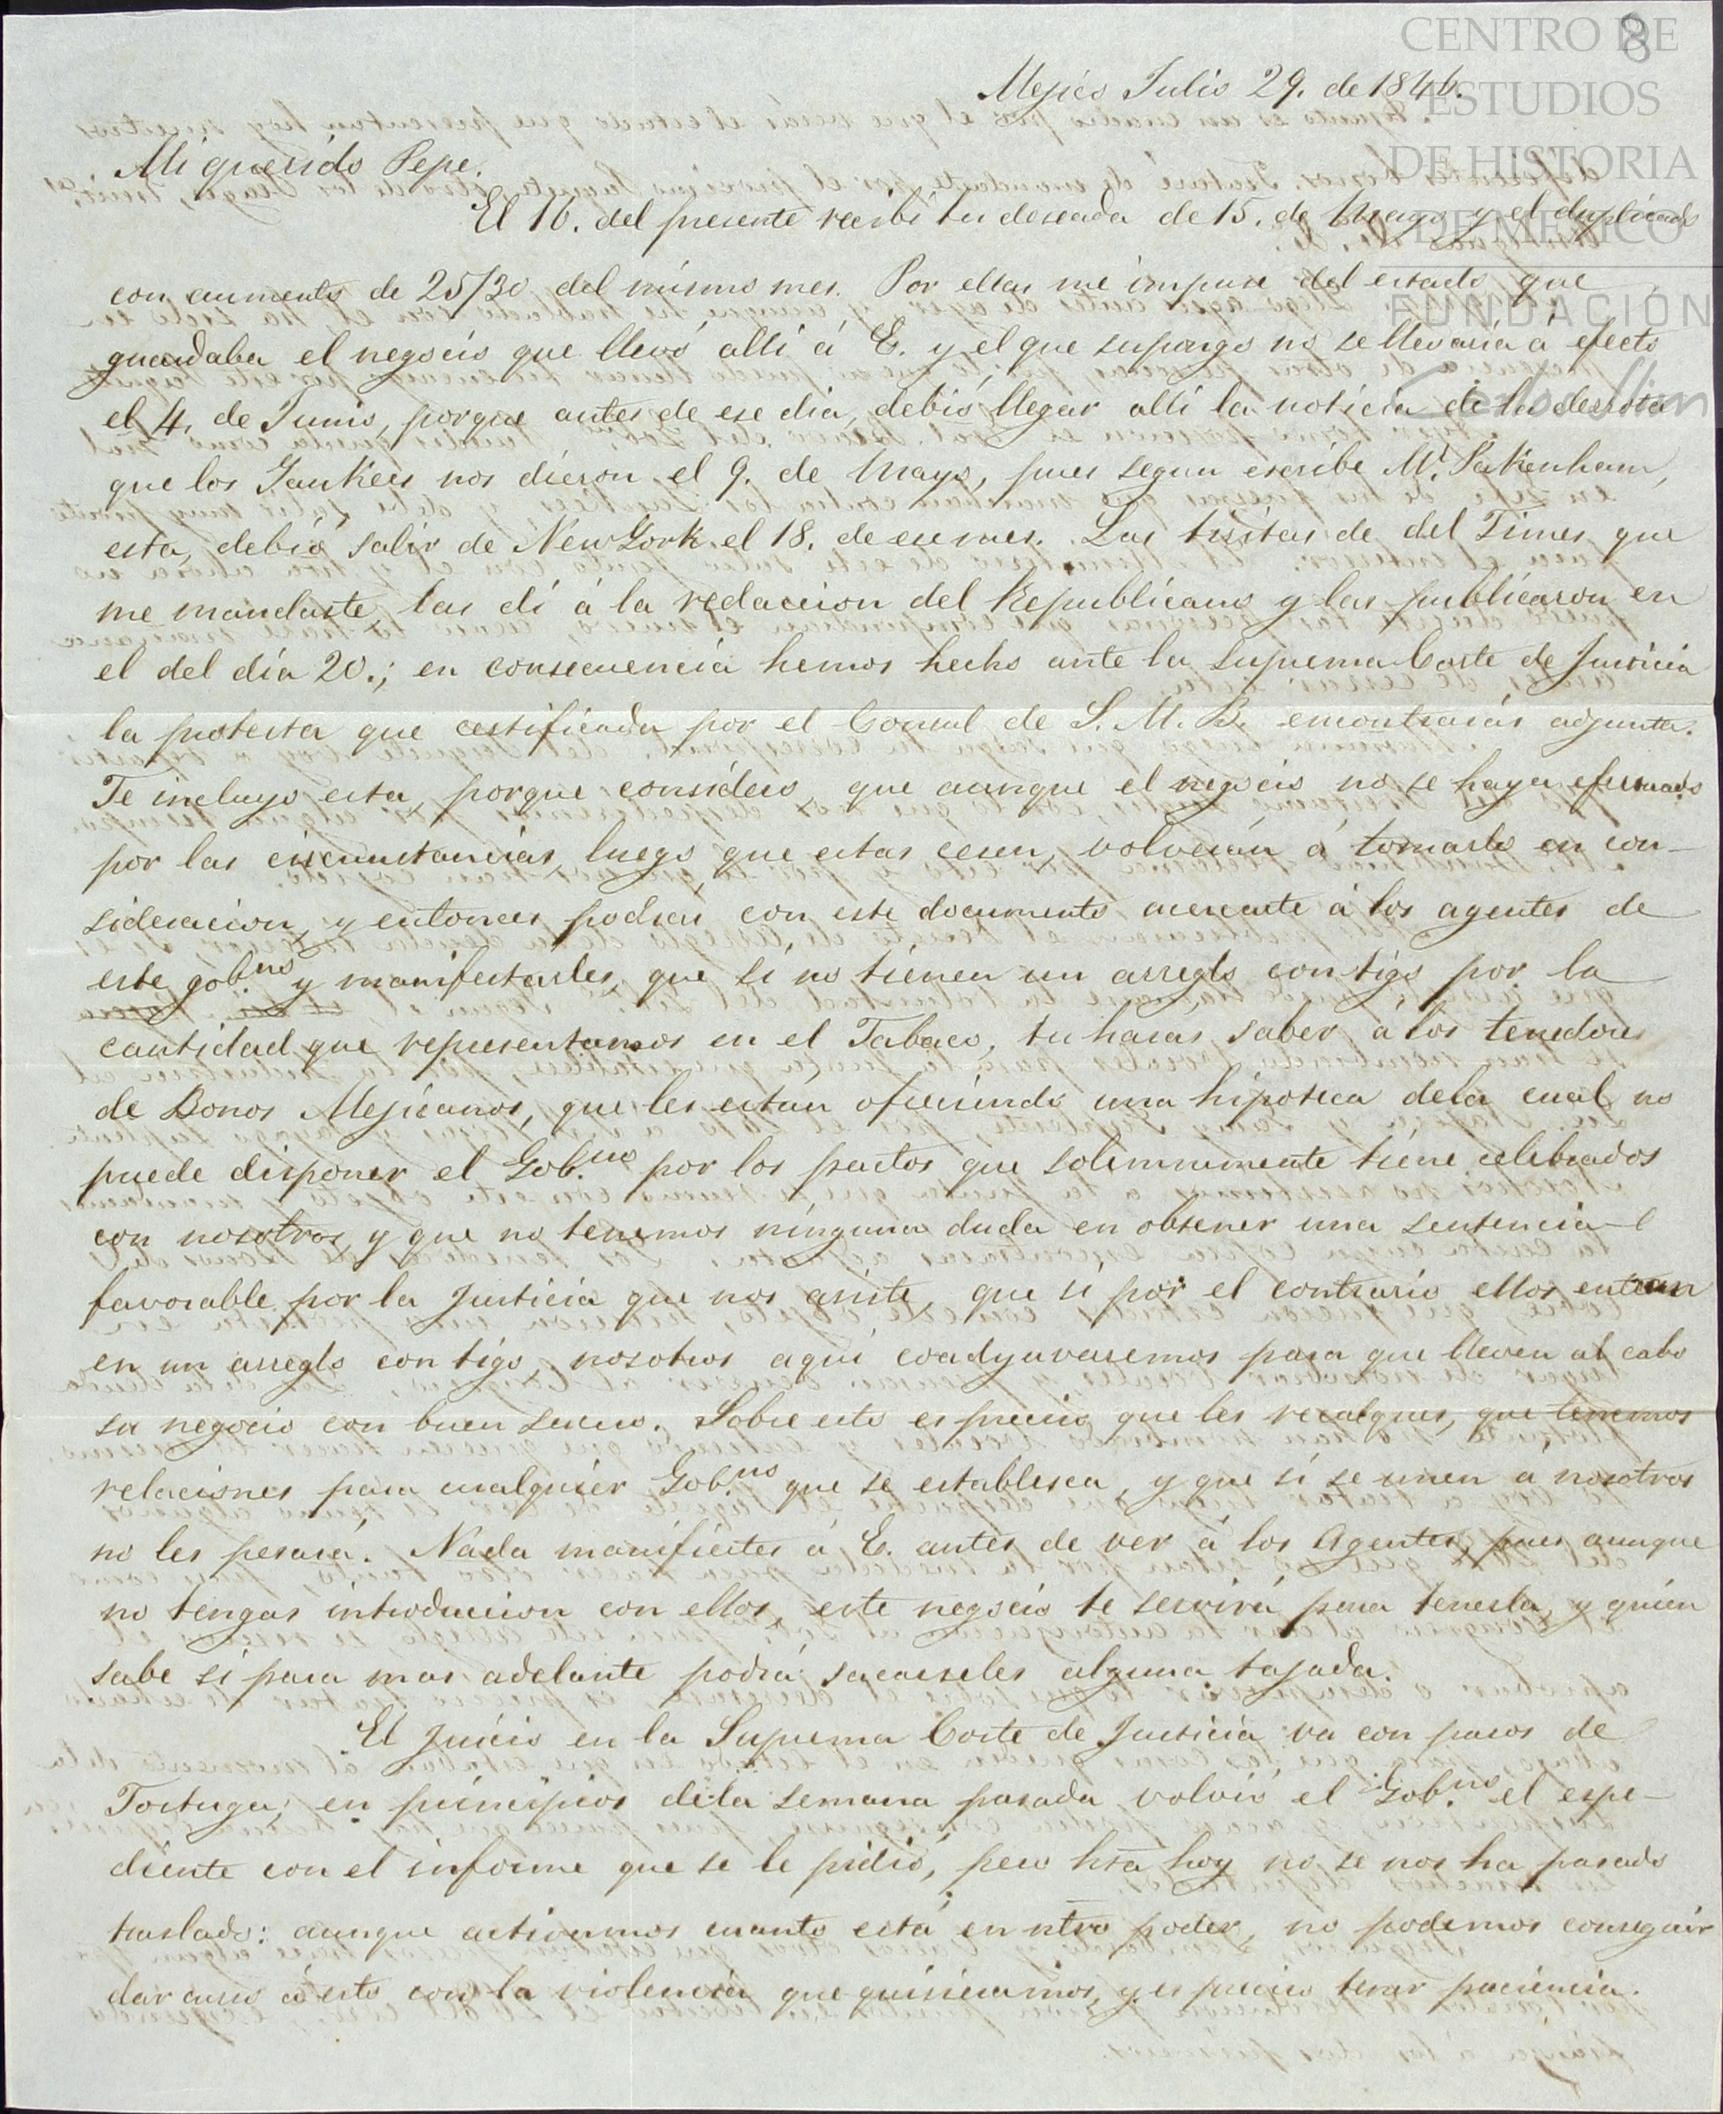 8
CENTRO DE
ESTUDIOS
DE HISTORIA
DE MEXICO
FUNDACIÓN
Carlos Slim
Mejico Julio 29. de 1846.
Mi querido Pepe.
El 16. del presente recibi tu deseada de 15. de Mayo y el duplicado
con aumento de 25/30 del mismo mes. Por ellas me impuse del estado que
guardaba el negocio que llevó allí á E. y el que supongo no se llevaria á efecto
el 4. de Junio, porque antes de ese dia, debió llegar allí la noticia de la derrota
que los Yankees nos dieron el 9. de Mayo, pues segun escribe Mr. Pakenham,
esta, debió salir de New York el 18. de ese mes. Las tiritas de del Times que
me mandaste, las dí á la redaccion del Republicano y las publicaron en
el del dia 20.; en consecuencia hemos hecho ante la Suprema Corte de Justicia
la protesta que certificada por el Consul de S. M. B. encontrarás adjunta.
Te incluyo esta, porque considero, que aunque el negocio no se haya efectuado
por las circunstancias, luego que estas cesen, volverán á tomarlo en con-
sideracion, y entonces podrás con este documento acercarte á los agentes de
este gob.no y manifestarles, que si no tienen un arreglo contigo por la
cantidad que representamos en el Tabaco, tu harás saber á los tenedores
de Bonos Mejicanos, que les están ofreciendo una hipoteca dela cual no
puede disponer el Gob.no por los pactos que solemnemente tiene celebrados
con nosotros, y que no tenemos ninguna duda en obtener una sentencia
favorable por la Justicia que nos asiste, que si por el contrario ellos entran
en un arreglo contigo, nosotros aqui coadyuvaremos para que lleven al cabo
su negocio con buen suceso. Sobre esto es preciso que les recalques, que tenemos
relaciones para cualquier Gob.no que se establesca, y que si se unen á nosotros
no les pesará. Nada manifiestes á E. antes de ver á los Agentes, pues aunque
no tengas introduccion con ellos, este negocio te servirá para tenerla, y quien
sabe si para mas adelante podrá sacarseles alguna tajada.
El juicio en la Suprema Corte de Justicia va con pasos de
Tortuga; en principios dela semana pasada volvió el Gob.no el espe-
diente con el informe que se le pidió, pero hta hoy no se nos ha pasado
traslado: aunque activamos cuanto está en ntro poder, no podemos conseguir
dar curso á esto con la violencia que quisieramos, y es preciso tener paciencia.